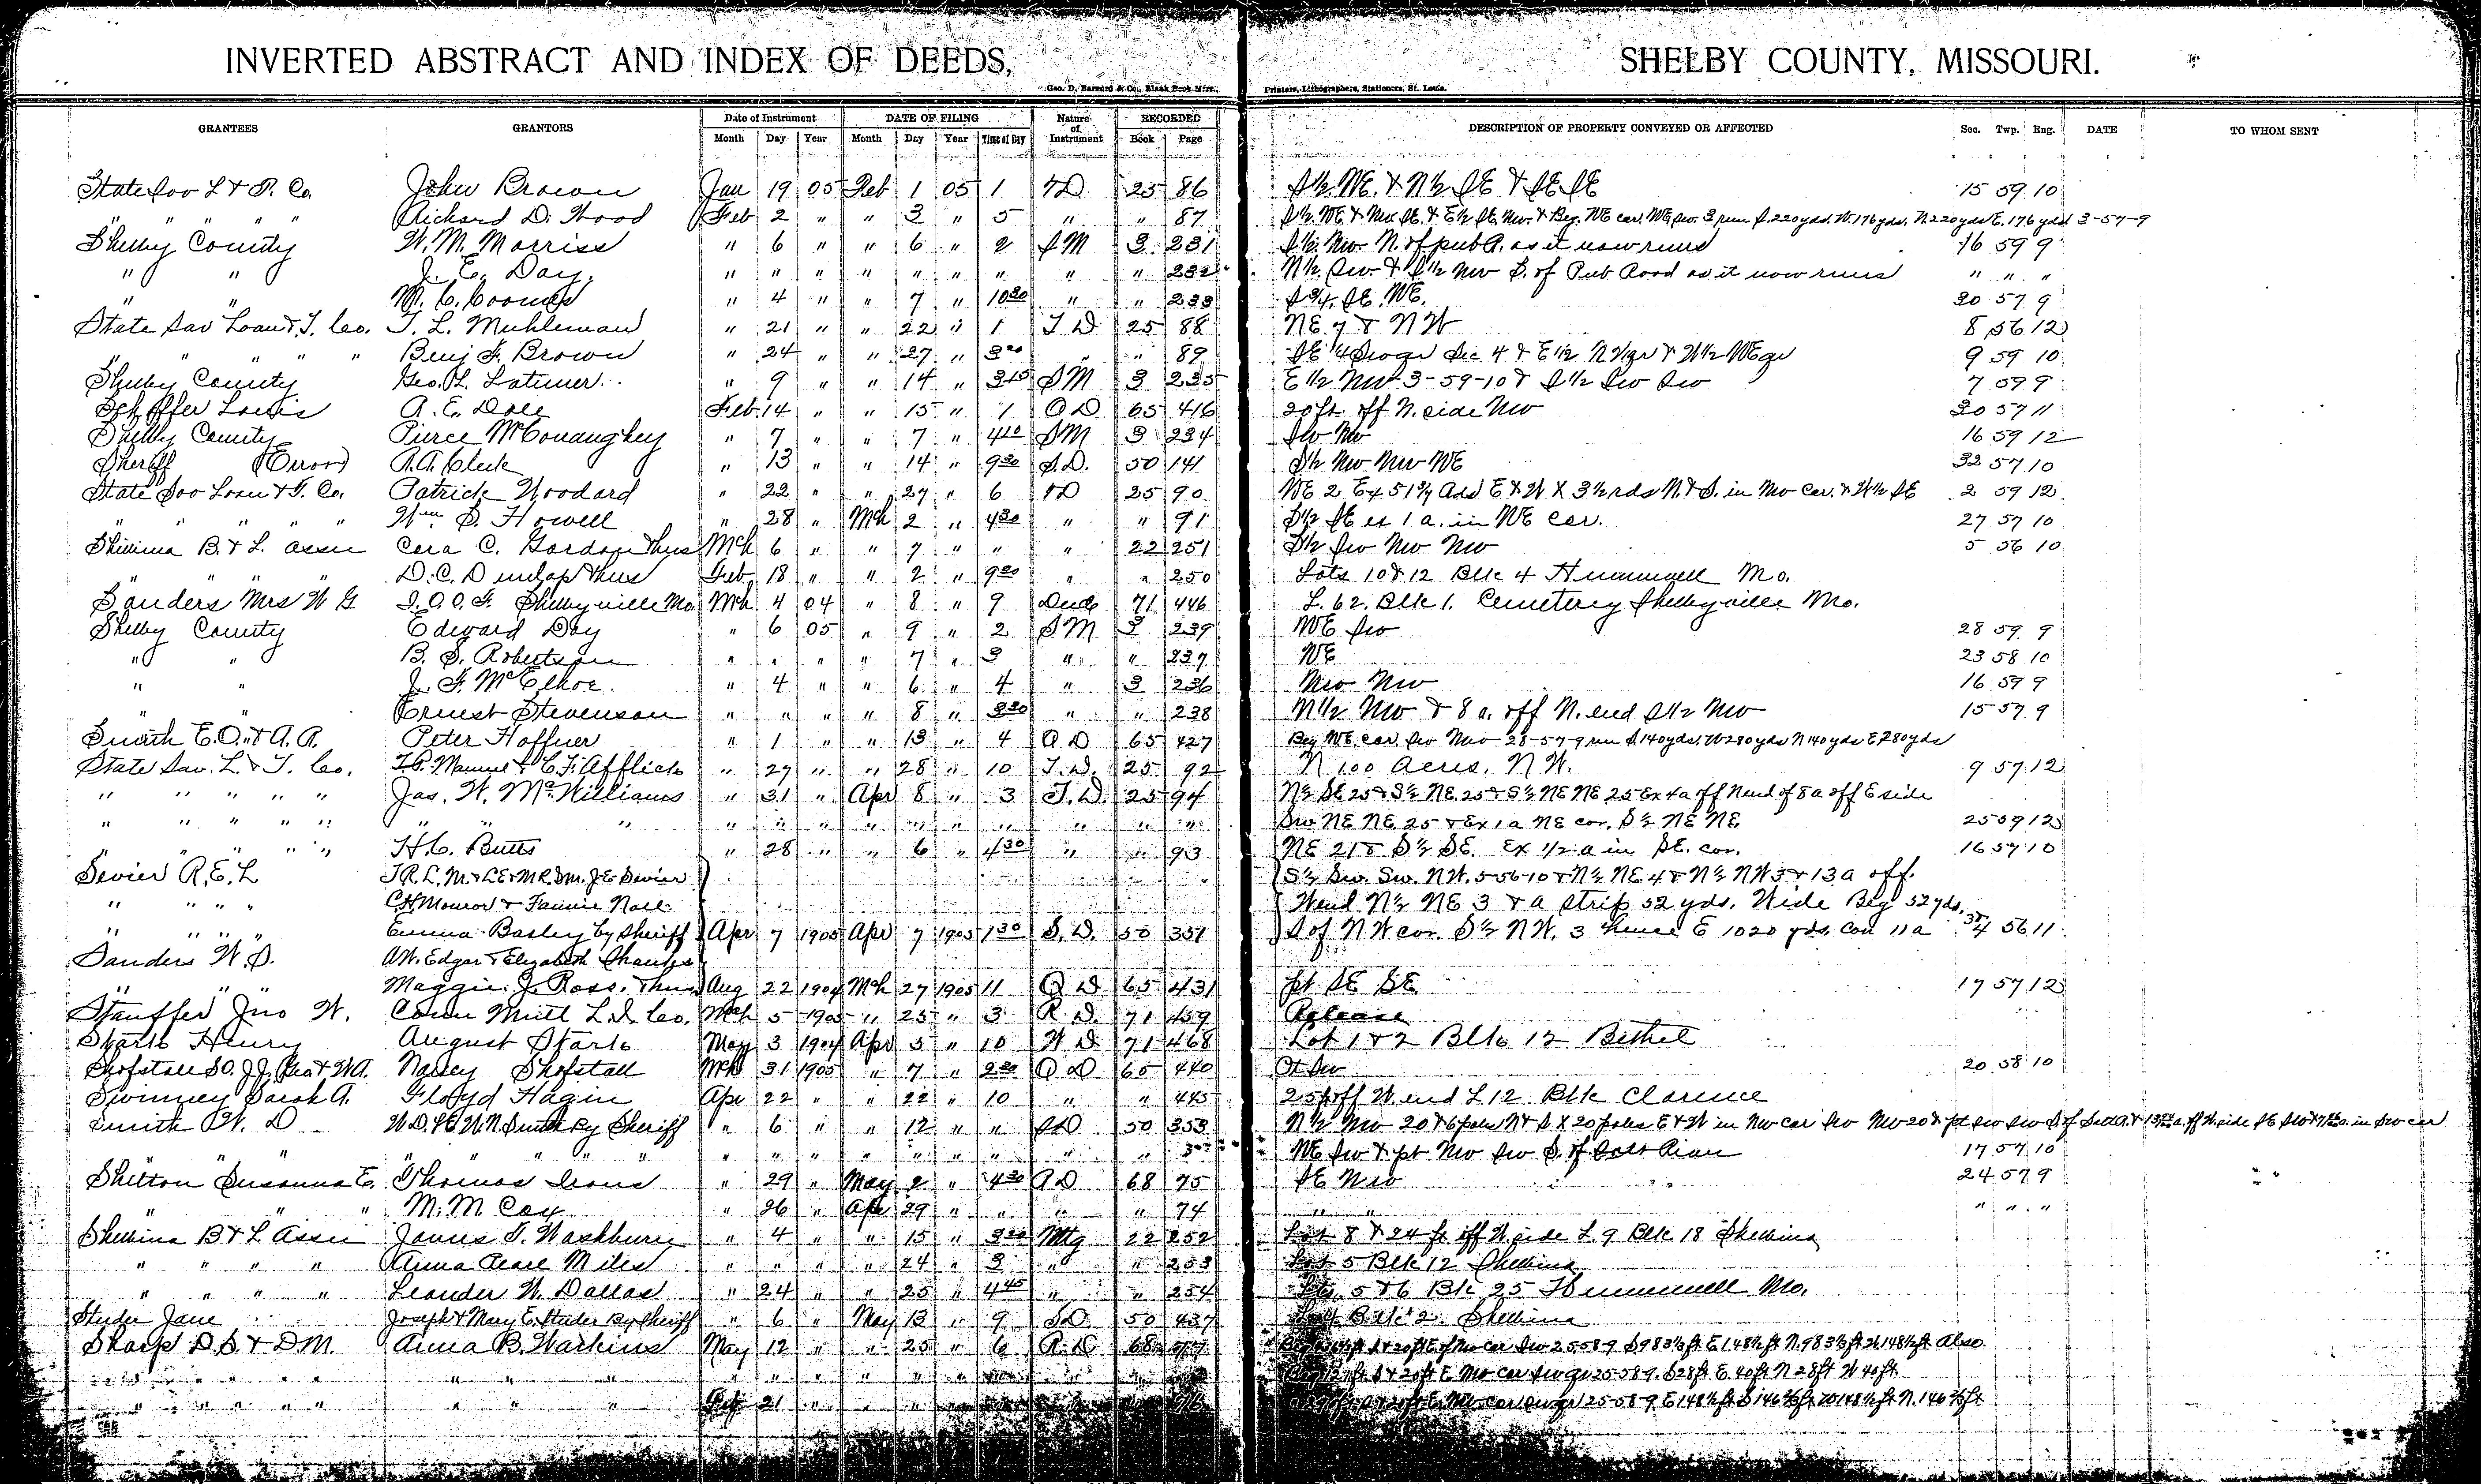 INVERTED ABSTRACT AND INDEX OF DEEDS, SHELBY COUNTY, MISSOURI.
Geo. D. Barnard & Co., Blank Book Mfrs., Printers, Lithographers, Stationers, St. Louis.
GRANTEES GRANTORS Date of Instrument DATE OF FILING Nature of Instrument RECORDED DESCRIPTION OF PROPERTY CONVEYED OR AFFECTED Sec. Twp. Rng. DATE TO WHOM SENT
Month Day Year Month Day Year Time of Day Book Page
State Sav L & T. Co. John Brown Jan 19 05 Feb 1 05 1 TD 25 86 S½ NE. & N½ SE & SE SE 15 59 10
" " " " Richard D. Wood Feb 2 " " 3 " 5 " " 87 S½ NE & Nw SE & E½ SE Nw & Beg. NE cor. NE Sw. 3, run S. 220 yds. W. 176 yds. N. 220 yds E. 176 yds 3-57-9
Shelby County W. M. Morriss " 6 " " 6 " 2 SM 3 231 S½ Nw N. of pub R. as it now runs 16 59 9
" " J. E. Day. " " " " " " " " " 232 N½ Sw & S½ Nw S. of Pub Road as it now runs " " "
" " M. C. Coomes " 4 " " 7 " 10 30 " " 233 S¾ SE NE. 30 57 9
State Sav Loan & T. Co. T. L. Muhleman " 21 " " 22 " 1 T D 25 88 NE 7 & N W 8 56 12
" " " " " Benj F. Brown " 24 " " 27 " 3 20 " " 89 SE ¼ Sw qr Sec 4 & E½ N W qr & W½ NE qr 9 59 10
Shelby County Geo. L. Latimer " 9 " " 14 " 3 15 SM 3 235 E½ Nw 3-59-10 & S½ Sw Sw 7 59 9
Louis A. E. Dale Feb. 14 " " 15 " 1 QD 65 416 20 ft. off N. side Nw 30 57 11
Shelby County Pierce McConaughey " 7 " " 7 " 4 10 SM 3 234 Sw Nw 16 59 12
Sheriff (Error) A. A. Cleek " 13 " " 14 " 9 30 S.D. 50 141 S½ Nw Nw NE 32 57 10
State Sav Loan & T. Co. Patrick Woodard " 22 " " 27 " 6 TD 25 90 NE 2 Ex 51¾ Rds E & W X 3½ rds N & S. in Nw Cor. & W½ SE 2 59 12
" " " " " Wm S. Howell " 28 " Mch 2 " 4 30 " " 91 S½ SE ex 1 a. in NE Cor. 27 57 10
Shelbina B. & L. Assn Cora C. Gordon & hus Mch 6 " " 7 " " " 22 251 S½ Sw Nw Nw 5 56 10
" " " " D. C. Dunlap & hus Feb 18 " " 2 " 9 20 " " 250 Lots 10 & 12 Blk 4 Hunnewell Mo.
Sanders Mrs W G I. O. O. F. Shelbyville Mo. Mch 4 04 " 8 " 9 Deed 71 446 L. 62. Blk 1. Cemetery Shelbyville Mo.
Shelby County Edward Day " 6 05 " 9 " 2 SM 3 239 NE Sw 28 59 9
" " B. S. Robertson " " " " 7 " 3 " " 237 NE 23 58 10
" " J. F. McElhoe. " 4 " " 6 " 4 " 3 236 Nw Nw 16 59 9
" " Ernest Stevenson " " " " 8 " 3 30 " " 238 N½ Nw & 8 a. off N. end S½ Nw 15 57 9
Smith E. O. & A. R. Peter Hoffner " 1 " " 13 " 4 QD 65 427 Beg NE cor. Sw Nw 28-57-9 run S 140 yds. W 280 yds N 140 yds E 280 yds
State Sav. L. & T. Co. & C. F. Afflick " 27 " " 28 " 10 T. D. 25 92 N 100 Acres, N W. 9 57 12
" " " " " Jas. W. McWilliams " 31 " Apr 8 " 3 T. D. 25 94 N½ SE 25 & S½ NE 25 & S½ NE NE 25 Ex 4 a off N end of 8 a off E side
" " " " " " " " " " " " " " " " " " Sw NE NE 25 & Ex 1 a NE cor. S½ NE NE 25 59 12
" " " " " H. C. Butts " 28 " " 6 " 4 30 " " 93 NE 21 & S½ SE. Ex ½ a in SE. cor. 16 57 10
Sevier R. E. L J. R. L. M. & L E & M R. S m. J. E. Sevier S½ Sw. Sw. N W. 5-56-10 & N½ NE 4 & N½ N W 3 & 13 a off.
" " " " C. H. Monroe & Fannie Noll W end N½ NE 3 & a Strip 52 yds. Wide Beg 52 yds.
" " " " Emma Basley by Sheriff Apr 7 1905 Apr 7 1905 1 30 S. D. 50 351 S of N W cor. S½ N W. 3 thence E 1020 yds. Con 11 a 56 11
Sanders W. S. A W. Edgar & Elizabeth
" " " Maggie J. Ross. & hus Aug 22 1904 Mch 27 1905 11 Q D. 65 431 pt SE SE 17 57 12
Stauffer Jno W. Conn Mutl L. I. Co. Mch 5 1905 " 25 " 3 R D. 71 459 Release
Stark Henry August Stark May 3 1904 Apr 5 " 10 W D 71 468 Lot 1 & 2 Blk 12 Bethel
Shofstall S O. J J. Geo & W A. Nancy Shofstall Mch 31 1905 " 7 " 2 20 Q D 65 440 Sw 20 58 10
Swinney Sarah A. Floyd Hagin Apr 22 " " 22 " 10 " " 445 25 p off W end L 12 Blk Clarence
Smith W. D W. D. & E. W. N Smith By Sheriff " 6 " " 12 " " SD 50 353 N½ Nw 20 & 6 poles N & S X 20 poles E & W in Nw cor Sw Nw 20 & pt Sw Sw S. of Salt R. & 13 a. off W. side SE Sw & a. in Sw cor
" " " " " " " " " " " " " " NE Sw & pt Nw Sw S. of Salt River 17 57 10
Shelton Susanna E. Thomas Irons " 29 " May 2 " 4 30 QD 68 75 SE Nw 24 57 9
" " " M. M. Cox " 26 " Apr 29 " " " " 74 " " " " "
Shelbina B & L Assn James T. Washburn " 4 " " 15 " 3 20 Mtg 22 252 Lot 8 & 24 ft off W. side L. 9 Blk 18 Shelbina
" " " " Anna Pearl Miles " " " " 24 " 3 " " 253 Lot 5 Blk 12 Shelbina
" " " " Leander W. Dallas " 24 " " 25 " 4 45 " " 254 Lts. 5 & 6 Blk 25 Hunnewell Mo.
Studer Jane Joseph & Mary E. Studer By Sheriff " 6 " May 13 " 9 SD 50 437 Blk 2 Shelbina
Sharp D. S. & D M. Anna B. Watkins May 12 " " 25 " 6 Q. D 68 S & 20 ft E of Nw cor Sw 25-58-9 S 983½ ft E 148½ ft N. 983½ ft W. 148½ ft Also
" " " " " " " " " " " " " S & 20 ft E Nw cor Sw qr 25-58-9. S 28 ft E 40 ft N 28 ft W 40 ft
" " " " " " " " 21 " " " " S & 20 ft E. Nw cor Sw qr 25-58-9 E 148½ ft S 146⅔ ft W 148½ ft N. 146⅔ ft